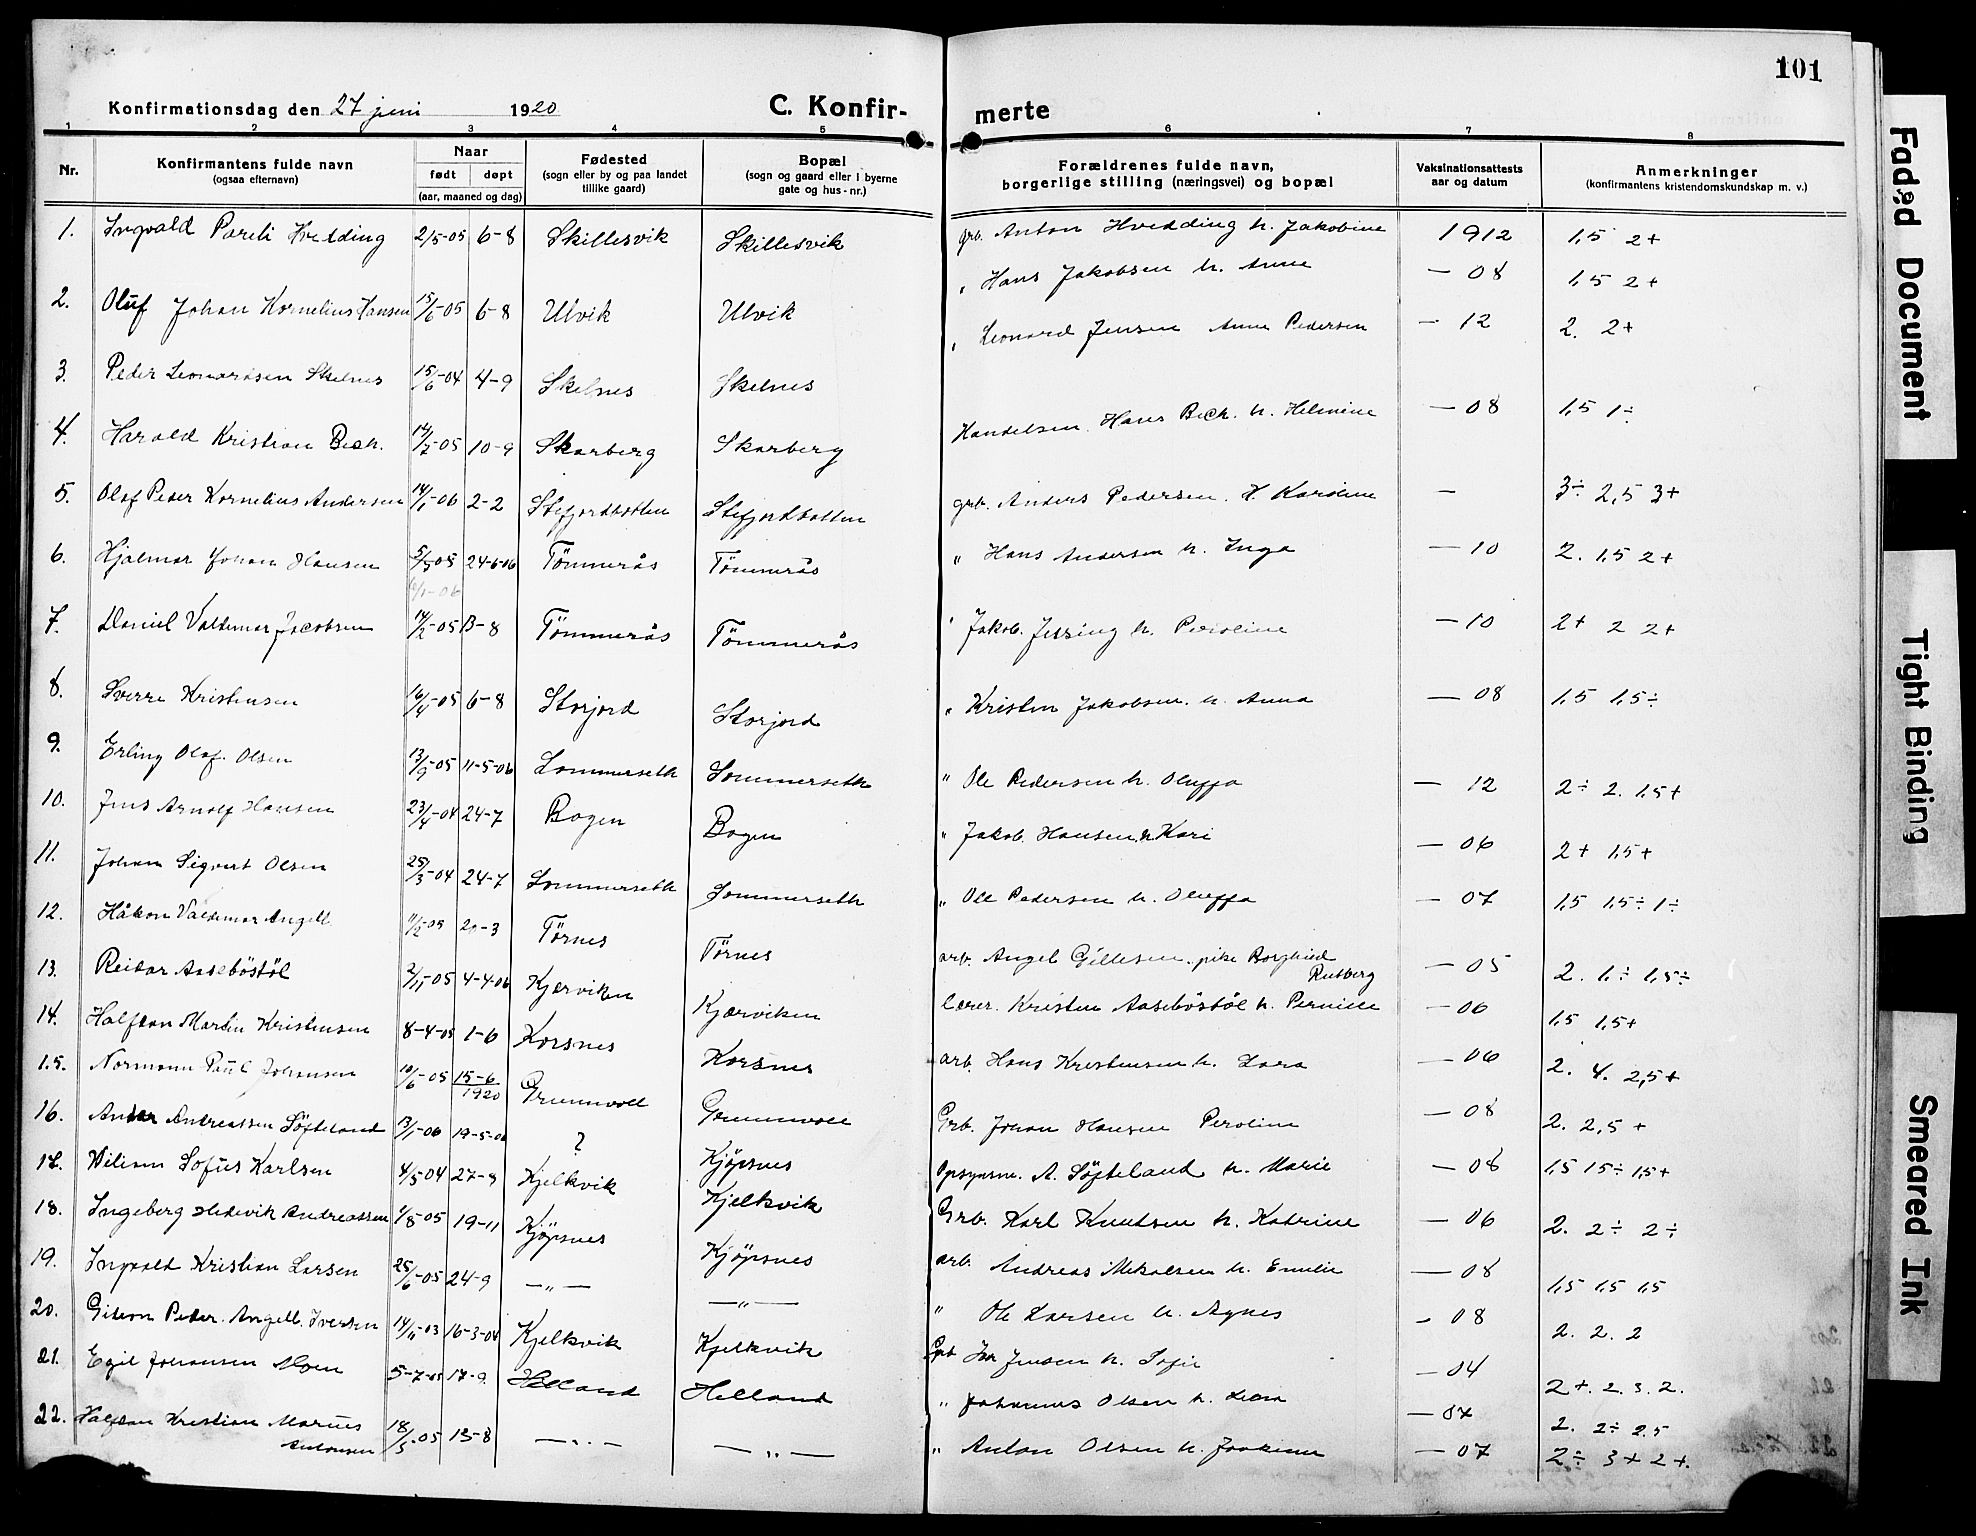 101
Konfirmationsdag den 27 juni 1920 C. Konfir- merte
1 2 3 4 5 6 7 8
Nr. Konfirmantens fulde navn (ogsaa efternavn) Naar født døpt (aar, maaned og dag) Fødested (sogn eller by og paa landet tillike gaard) Bopæl (sogn og gaard eller i byerne gate og hus-nr.) Forældrenes fulde navn, borgerlige stilling (næringsvei) og bopæl Vaksinationsattests aar og datum Anmerkninger (konfirmantens kristendomskundskap m. v.)
1. Ingvald Pareli Hvedding 2/5-05 6-8 Skillesvik Skillesvik grb. Anton Hvedding h. Jakobine 1912 1,5 2+
2. Oluf Johan Kornelius Hansen 15/6-05 6-8 Ulvik Ulvik " Hans Jakobsen h. Anne - 08 1,5 2+
3. Peder Leonardsen Skelnes 15/6-04 4-9 Skelnes Skelnes " Leonard Jensen Anne Pedersen - 12 2. 2+
4. Harald Kristian Beck. 14/7-05 10-9 Skarberg Skarberg Handelsm. Hans Beck. h. Helmine - 08 1,5 1÷
5. Olaf Peder Kornelius Andersen 14/1-06 2-2 Stefjordbotten Stefjordbotten grb. Anders Pedersen. H Karoline - 3÷ 2,5 3+
6. Hjalmar Johan Hansen 5/5-05 24-6-06 Tömmerås Tömmerås " Hans Andersen h. Inga - 10 2. 1,5 2+
7. Daniel Valdemar Jacobsen 14/2-05 13-8 Tömmerås Tömmerås " Jakob. Jessing h. Peroline - 10 2+ 2 2+
8. Sverre Kristensen 16/4-05 6-8 Storjord Storjord " Kristen Jakobsen. h. Anna - 08 1,5 1,5÷
9. Erling Olaf. Olsen 13/9-05 11-5-06 Sommerseth Sommerseth " Ole Pedersen h. Oluffa - 12 2÷ 2. 1,5+
10. Jens Arnolf Hansen 23/4-04 24-7 Bogen Bogen " Jakob. Hansen h Kari - 06 2+ 1,5+
11. Johan Sigvart Olsen 25/3-04 24-7 Sommerseth Sommerseth " Ole Pedersen h. Oluffa - 07 1,5 1,5÷ 1÷
12. Håkon Valdemar Angell 11/2-05 20-3 Tørnes Tørnes arb. Angel Gillesen. pike Borghild Rutberg - 05 2. 1÷ 1,5÷
13. Reidar Aaseböstöl 2/11-05 4-4-06 Kjærviken Kjærviken lærer. Kristen Aaseböstöl h. Pernille - 06 1,5 1,5+
14. Halfdan Martin Kristensen 8-4-05 1-6 Korsnes Korsnes arb. Hans Kristensen h. Lara - 06 2. 4. 2,5+
15. Normann Paul Johansen 10/6-05 15-6 1920 Grunnvoll Grunnvoll Grb. Johan Hansen Peroline - 08 2. 2,5 +
16. Andor Andreassen Söfteland 13/1-06 19-5-06 ? Kjöpsnes Opsynsm. A. Söfteland h. Marie - 08 1,5 1,5÷ 1,5+
17. Wiliam Sofus Karlsen 4/5 04 27-8 Kjelkvik Kjelkvik Grb. Karl Knutsen h. Katrine - 06 2. 2÷ 2÷
18. Ingeberg Hedevik Andreassen 1/8-05 19-11 Kjöpsnes Kjöpsnes arb. Andreas Mikalsen h. Emilie - 08 1,5 1,5 1,5
19. Ingvald Kristian Larsen 25/6-05 24-9 - " - - " - " Ole Larsen h. Agnes - 08 2. 2. 2
20. Gideon Peder. Angell. Iversen 14/11-03 16-3-04 Kjelkvik Kjelkvik Grb Jensen h. Sofie - 04 2+. 2. 3. 2.
21. Egil Johansen Moen 5-7-05 17-9 Helland Helland " Johannes Olsen h. - 07 2. 2÷ 2.5
22. Halfdan Kristian Marius Antonsen 18/5-05 13-8 - " - - " - " Anton Olsen h. - 07 2÷ 3+ 2+.
Faded Document
Tight Binding
Smeared Ink